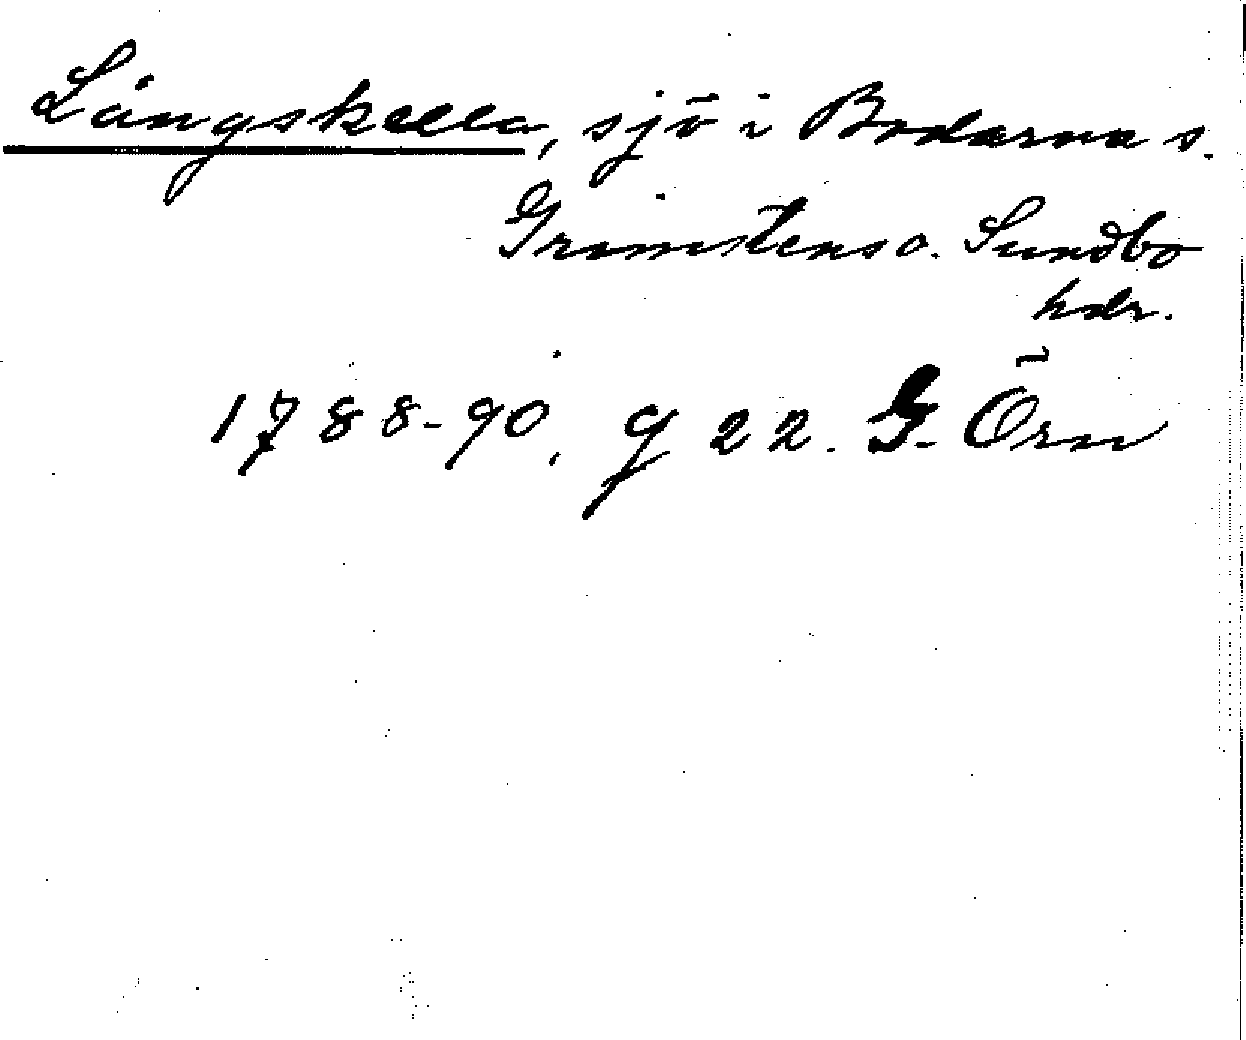 Långskella, sjö i Bodarna s.
Grimstens o. Sundbo
hdr.
1788-90, g 22. G. Örn